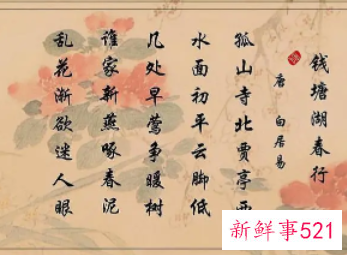 钱塘湖春行
唐 白居易
孤山寺北贾亭西
水面初平云脚低
几处早莺争暖树
谁家新燕啄春泥
乱花渐欲迷人眼
新鲜事521